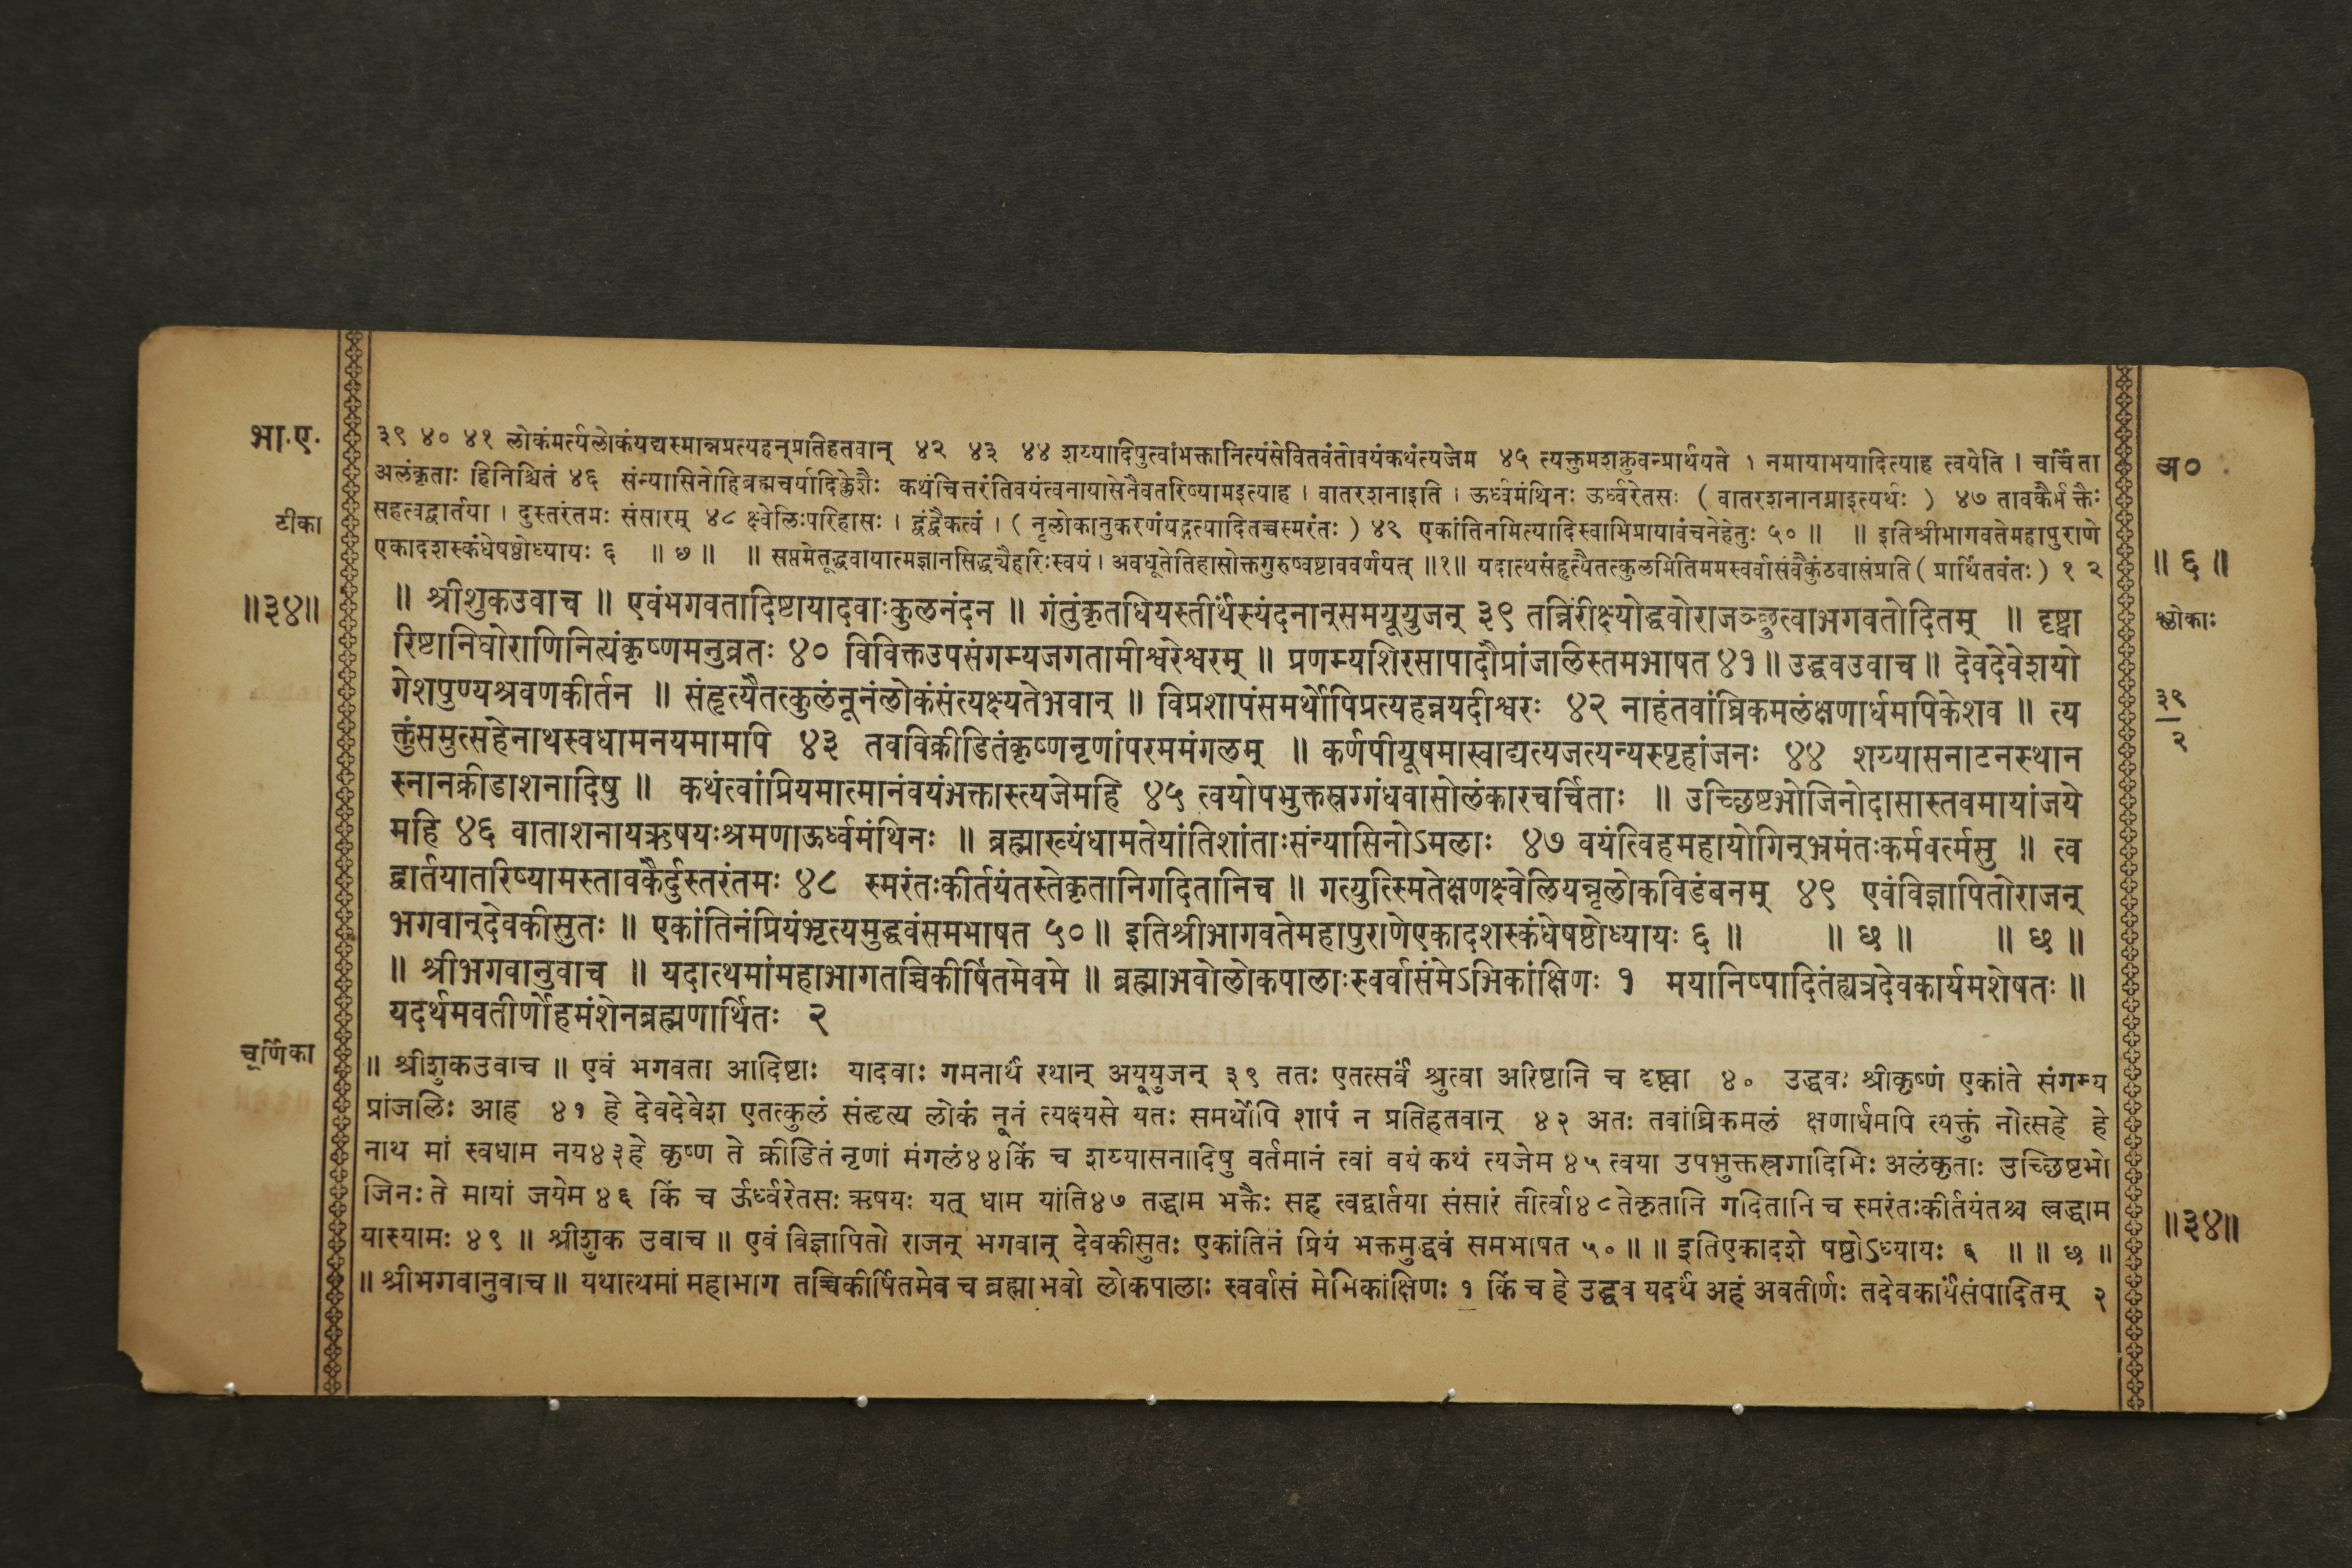 भा.ए.
३९ ४० ४१ लोकंमर्त्यलोकंयद्यस्मान्नप्रत्यहन्प्रतिहतवान् ४२ ४३ ४४ शय्यादिषुत्वांभक्तानित्यंसेवितवंतोवयंकथंत्यजेम ४५ त्यक्तुमशक्नुवन्प्रार्थयते । नमायाभयादित्याह त्वयेति । चर्चिता
अ०
अलंकृताः हिनिश्चितं ४६ संन्यासिनोहिब्रह्मचर्यादिक्लेशैः कथंचित्तरंतिवयंत्वनायासेनैवतरिष्यामइत्याह । वातरशनाइति । ऊर्ध्वमंथिनः ऊर्ध्वरेतसः ( वातरशनानग्नाइत्यर्थः ) ४७ तावकैर्भक्तैः
टीका
सहत्वद्वार्तया । दुस्तरंतमः संसारम् ४८ क्ष्वेलिःपरिहासः । द्वंद्वैकत्वं । ( नृलोकानुकरणंयद्गत्यादितच्चस्मरंतः ) ४९ एकांतिनमित्यादिस्वाभिप्रायावंचनेहेतुः ५० ॥ ॥ इतिश्रीभागवतेमहापुराणे
एकादशस्कंधेषष्ठोध्यायः ६ ॥ छ ॥ ॥ सप्तमेतूद्धवायात्मज्ञानसिद्ध्यैहरिःस्वयं । अवधूतेतिहासोक्तगुरुष्वष्टाववर्णयत् ॥१॥ यदात्थसंहृत्यैतत्कुलमितिममस्वर्वासंवैकुंठवासंप्रति ( प्रार्थितवंतः ) १ २
॥ ६ ॥
॥३४॥
॥ श्रीशुकउवाच ॥ एवंभगवतादिष्टायादवाःकुलनंदन ॥ गंतुंकृतधियस्तीर्थंस्यंदनान्समयूयुजन् ३९ तन्निरीक्ष्योद्धवोराजञ्छ्रुत्वाभगवतोदितम् ॥ दृष्ट्वा
श्लोकाः
रिष्टानिघोराणिनित्यंकृष्णमनुव्रतः ४० विविक्तउपसंगम्यजगतामीश्वरेश्वरम् ॥ प्रणम्यशिरसापादौप्रांजलिस्तमभाषत ४१ ॥ उद्धवउवाच ॥ देवदेवेशयो
गेशपुण्यश्रवणकीर्तन ॥ संहृत्यैतत्कुलंनूनंलोकंसंत्यक्ष्यतेभवान् ॥ विप्रशापंसमर्थोपिप्रत्यहन्नयदीश्वरः ४२ नाहंतवांघ्रिकमलंक्षणार्धमपिकेशव ॥ त्य
३९
२
क्तुंसमुत्सहेनाथस्वधामनयमामपि ४३ तवविक्रीडितंकृष्णनृणांपरममंगलम् ॥ कर्णपीयूषमास्वाद्यत्यजत्यन्यस्पृहांजनः ४४ शय्यासनाटनस्थान
स्नानक्रीडाशनादिषु ॥ कथंत्वांप्रियमात्मानंवयंभक्तास्त्यजेमहि ४५ त्वयोपभुक्तस्रग्गंधवासोलंकारचर्चिताः ॥ उच्छिष्टभोजिनोदासास्तवमायांजये
महि ४६ वाताशनायऋषयःश्रमणाऊर्ध्वमंथिनः ॥ ब्रह्माख्यंधामतेयांतिशांताःसंन्यासिनोऽमलाः ४७ वयंत्विहमहायोगिन्भ्रमंतःकर्मवर्त्मसु ॥ त्व
द्वार्तयातरिष्यामस्तावकैर्दुस्तरंतमः ४८ स्मरंतःकीर्तयंतस्तेकृतानिगदितानिच ॥ गत्युत्स्मितेक्षणक्ष्वेलियन्नृलोकविडंबनम् ४९ एवंविज्ञापितोराजन्
भगवान्देवकीसुतः ॥ एकांतिनंप्रियंभृत्यमुद्धवंसमभाषत ५० ॥ इतिश्रीभागवतेमहापुराणेएकादशस्कंधेषष्ठोध्यायः ६ ॥ ॥ छ ॥ ॥ छ ॥
॥ श्रीभगवानुवाच ॥ यदात्थमांमहाभागतच्चिकीर्षितमेवमे ॥ ब्रह्माभवोलोकपालाःस्वर्वासंमेऽभिकांक्षिणः १ मयानिष्पादितंह्यत्रदेवकार्यमशेषतः ॥
यदर्थमवतीर्णोहमंशेनब्रह्मणार्थितः २
चूर्णिका
॥ श्रीशुकउवाच ॥ एवं भगवता आदिष्टाः यादवाः गमनार्थं रथान् अयूयुजन् ३९ ततः एतत्सर्वं श्रुत्वा अरिष्टानि च दृष्ट्वा ४० उद्धवः श्रीकृष्णं एकांते संगम्य
प्रांजलिः आह ४१ हे देवदेवेश एतत्कुलं संहृत्य लोकं नूनं त्यक्ष्यसे यतः समर्थोपि शापं न प्रतिहतवान् ४२ अतः तवांघ्रिकमलं क्षणार्धमपि त्यक्तुं नोत्सहे हे
नाथ मां स्वधाम नय४३हे कृष्ण ते क्रीडितं नृणां मंगलं४४किं च शय्यासनादिषु वर्तमानं त्वां वयं कथं त्यजेम ४५ त्वया उपभुक्तस्रगादिभिः अलंकृताः उच्छिष्टभो
जिनः ते मायां जयेम ४६ किं च ऊर्ध्वरेतसः ऋषयः यत् धाम यांति४७ तद्धाम भक्तैः सह त्वद्वार्तया संसारं तीर्त्वा४८तेकृतानि गदितानि च स्मरंतःकीर्तयंतश्च त्वद्धाम
॥३४॥
यास्यामः ४९ ॥ श्रीशुक उवाच ॥ एवं विज्ञापितो राजन् भगवान् देवकीसुतः एकांतिनं प्रियं भक्तमुद्धवं समभाषत ५० ॥ ॥ इतिएकादशे षष्ठोऽध्यायः ६ ॥ ॥ छ ॥
॥ श्रीभगवानुवाच ॥ यथात्थमां महाभाग तच्चिकीर्षितमेव च ब्रह्मा भवो लोकपालाः स्वर्वासं मेभिकांक्षिणः १ किं च हे उद्धव यदर्थं अहं अवतीर्णः तदेवकार्यंसंपादितम् २